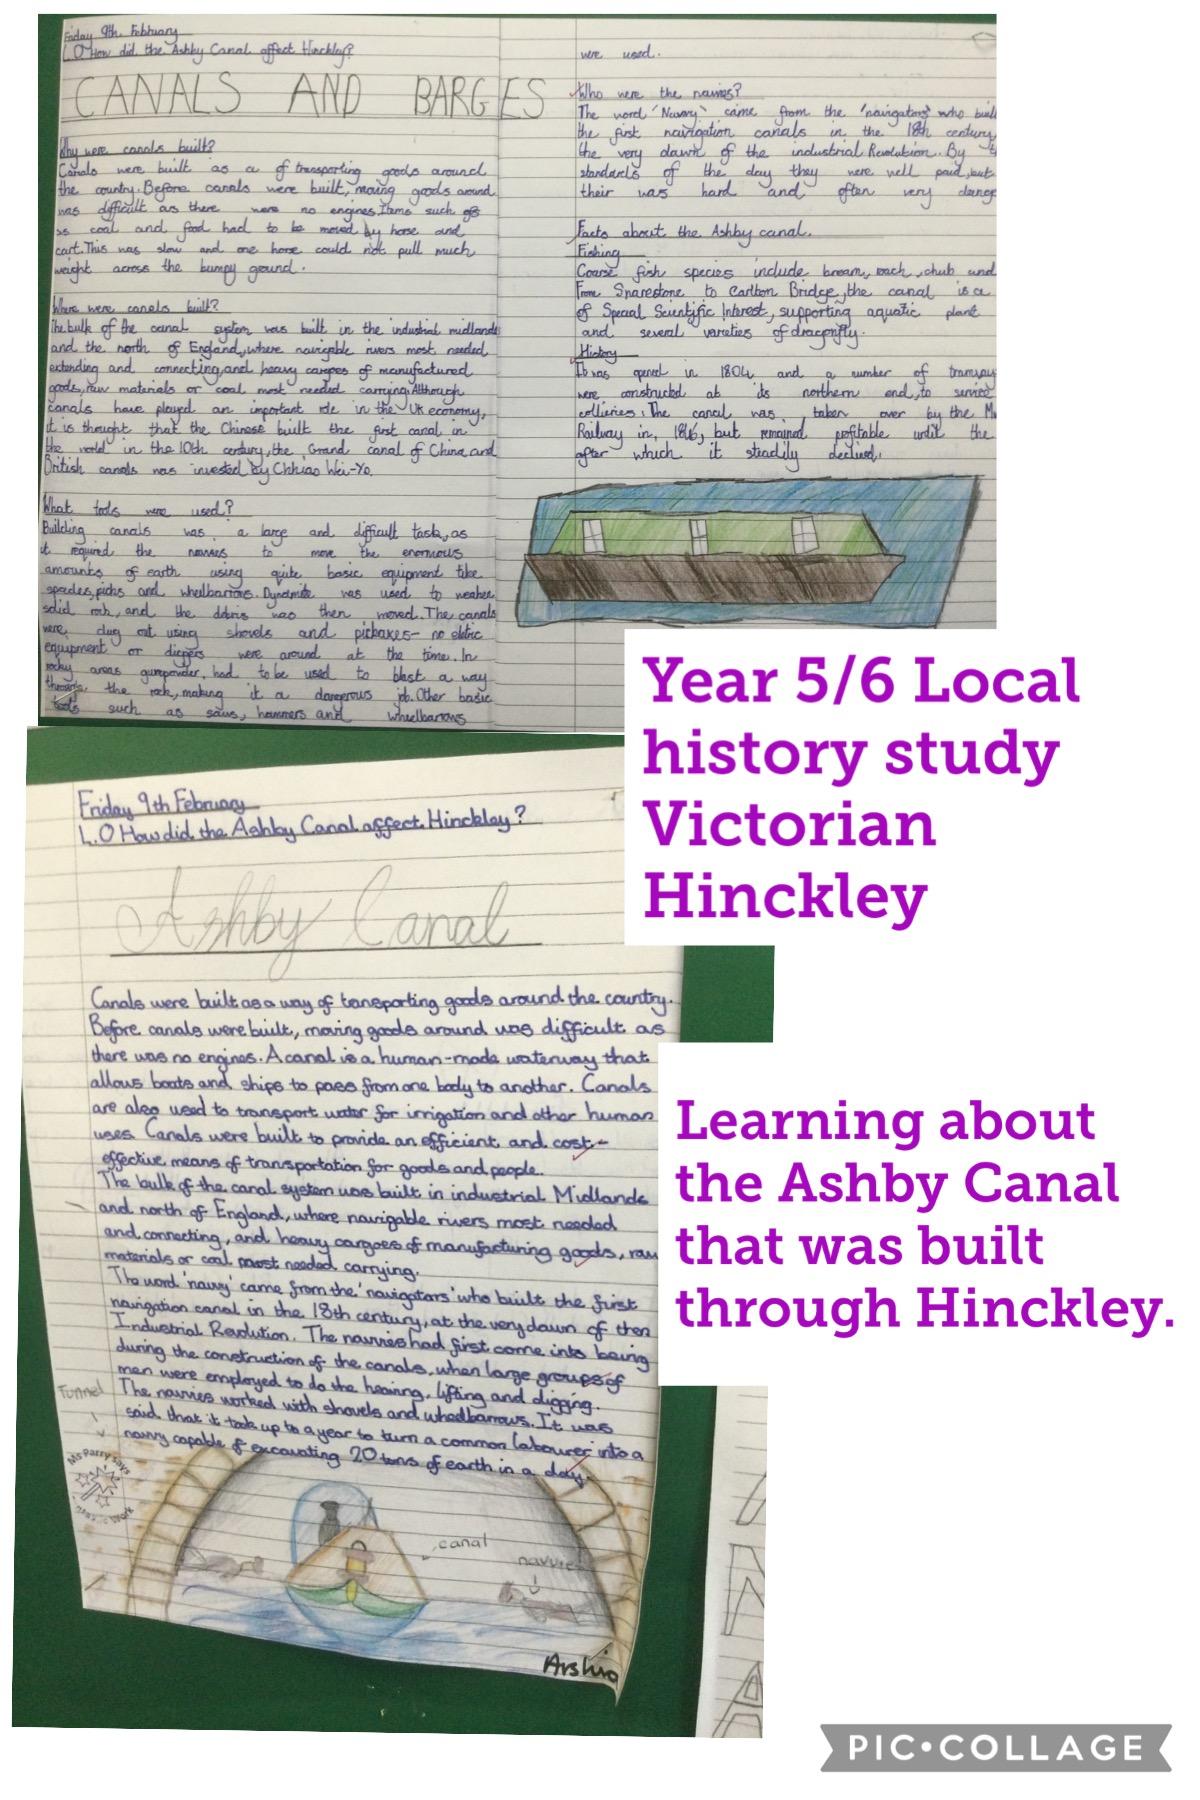 Friday 9th February
L.O How did the Ashby Canal affect Hinckley?
CANALS AND BARGES
Why were canals built?
Canals were built as a of transporting goods around
the country. Before canals were built, moving goods around
was difficult as there were no engines. Items such as
as coal and food had to be moved by horse and
cart. This was slow and one horse could not pull much
weight across the bumpy ground.
Where were canals built?
The bulk of the canal system was built in the industrial midlands
and the north of England, where navigable rivers most needed
extending and connecting, and heavy cargoes of manufactured
goods, raw materials or coal most needed carrying. Although
canals have played an important role in the UK economy,
it is thought that the Chinese built the first canal in
the world in the 10th century, the Grand canal of China and
British canals was invested by Chhiao Wei-Yo.
What tools were used?
Building canals was a large and difficult task, as
it required the navvies to move the enormous
amounts of earth using quite basic equipment like
spades, picks and wheelbarrows. Dynamite was used to weaken
solid rock, and the debris was then moved. The canals
were dug out using shovels and pickaxes- no
equipment or diggers were around at the time. In
rocky areas gunpowder, had to be used to blast a way
the rock, making it a dangerous job. Other basic
tools such as saws, hammers and wheelbarrows
were used.
Who were the navvies?
The word 'Navvy' came from the 'navigators' who buil
the first navigation canals in the 18th century,
the very dawn of the industrial Revolution. By t
standards of the day they were well paid, but
their was hard and often very dange
Facts about the Ashby canal.
Fishing
Coarse fish species include bream, roach, chub and
From Snarestone to Carlton Bridge, the canal is a
of Special Scientific Interest, supporting aquatic plant
and several varieties of dragonfly.
History
It was opened in 1804 and a number of tramway
were constructed at its northern end, to service
collieries. The canal was taken over by the Mi
Railway in, 1846, but remained profitable until the
after which it steadily declined.
Year 5/6 Local
history study
Victorian
Hinckley
Friday 9th February
L.O How did the Ashby Canal affect Hinckley?
Ashby Canal
Canals were built as a way of transporting goods around the country.
Before canals were built, moving goods around was difficult as
there was no engines. A canal is a human-made waterway that
allows boats and ships to pass from one body to another. Canals
are also used to transport water for irrigation and other human
uses. Canals were built to provide an efficient and cost-
effective means of transportation for goods and people.
The bulk of the canal system was built in industrial Midlands
and north of England, where navigable rivers most needed
and connecting, and heavy cargoes of manufacturing goods, raw
materials or coal most needed carrying.
The word 'navvy' came from the 'navigators' who built the first
navigation canal in the 18th century, at the very dawn of then
Industrial Revolution. The navvies had first come into being
during the construction of the canals, when large groups of
men were employed to do the heaving, lifting and digging.
The navvies worked with shovels and wheelbarrows. It was
said that it took up to a year to turn a common labourer into a
navvy capable of excavating 20 tons of earth in a day.
Tunnel
Ms Parry says
work
canal
navvie
Arshia
Learning about
the Ashby Canal
that was built
through Hinckley.
PIC•COLLAGE